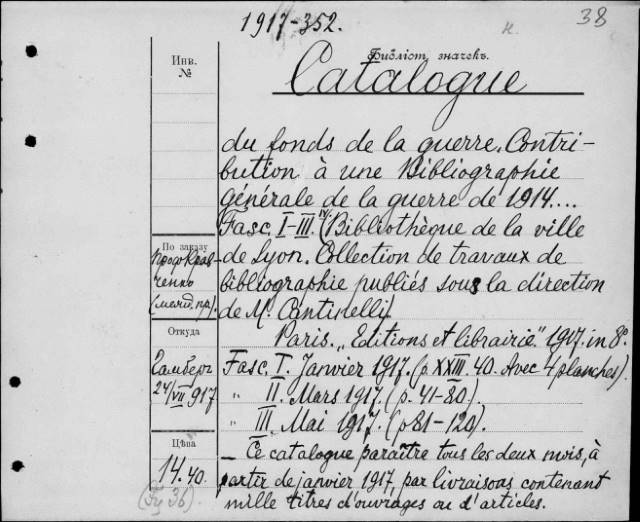 1917-352.
38
Инв.
№
Библіот. значекъ.
Catalogue
du fonds de la guerre. Contri-
bution à une Bibliographie
générale de la guerre de 1914....
Fasc. I-III. IV. (Bibliothèque de la ville
de Lyon. Collection de travaux de
bibliographie publiés sous la direction
de M. Cantinelli)
По заказу
проф. Крав-
ченко
(межд. пр.)
Paris. „Editions et librairie." 1917. in 8º.
Откуда
Гамберг
24/VII 917
Fasc. I. Janvier 1917. (p. XXIII. 40. Avec 4 planches).
„ II. Mars 1917. (p. 41-80).
„ III. Mai 1917. (p 81-120).
Цѣна
14.40.
— Ce catalogue paraître tous les deux mois, à
partir de janvier 1917, par livraisons contenant
mille titres d'ouvrages ou d'articles.